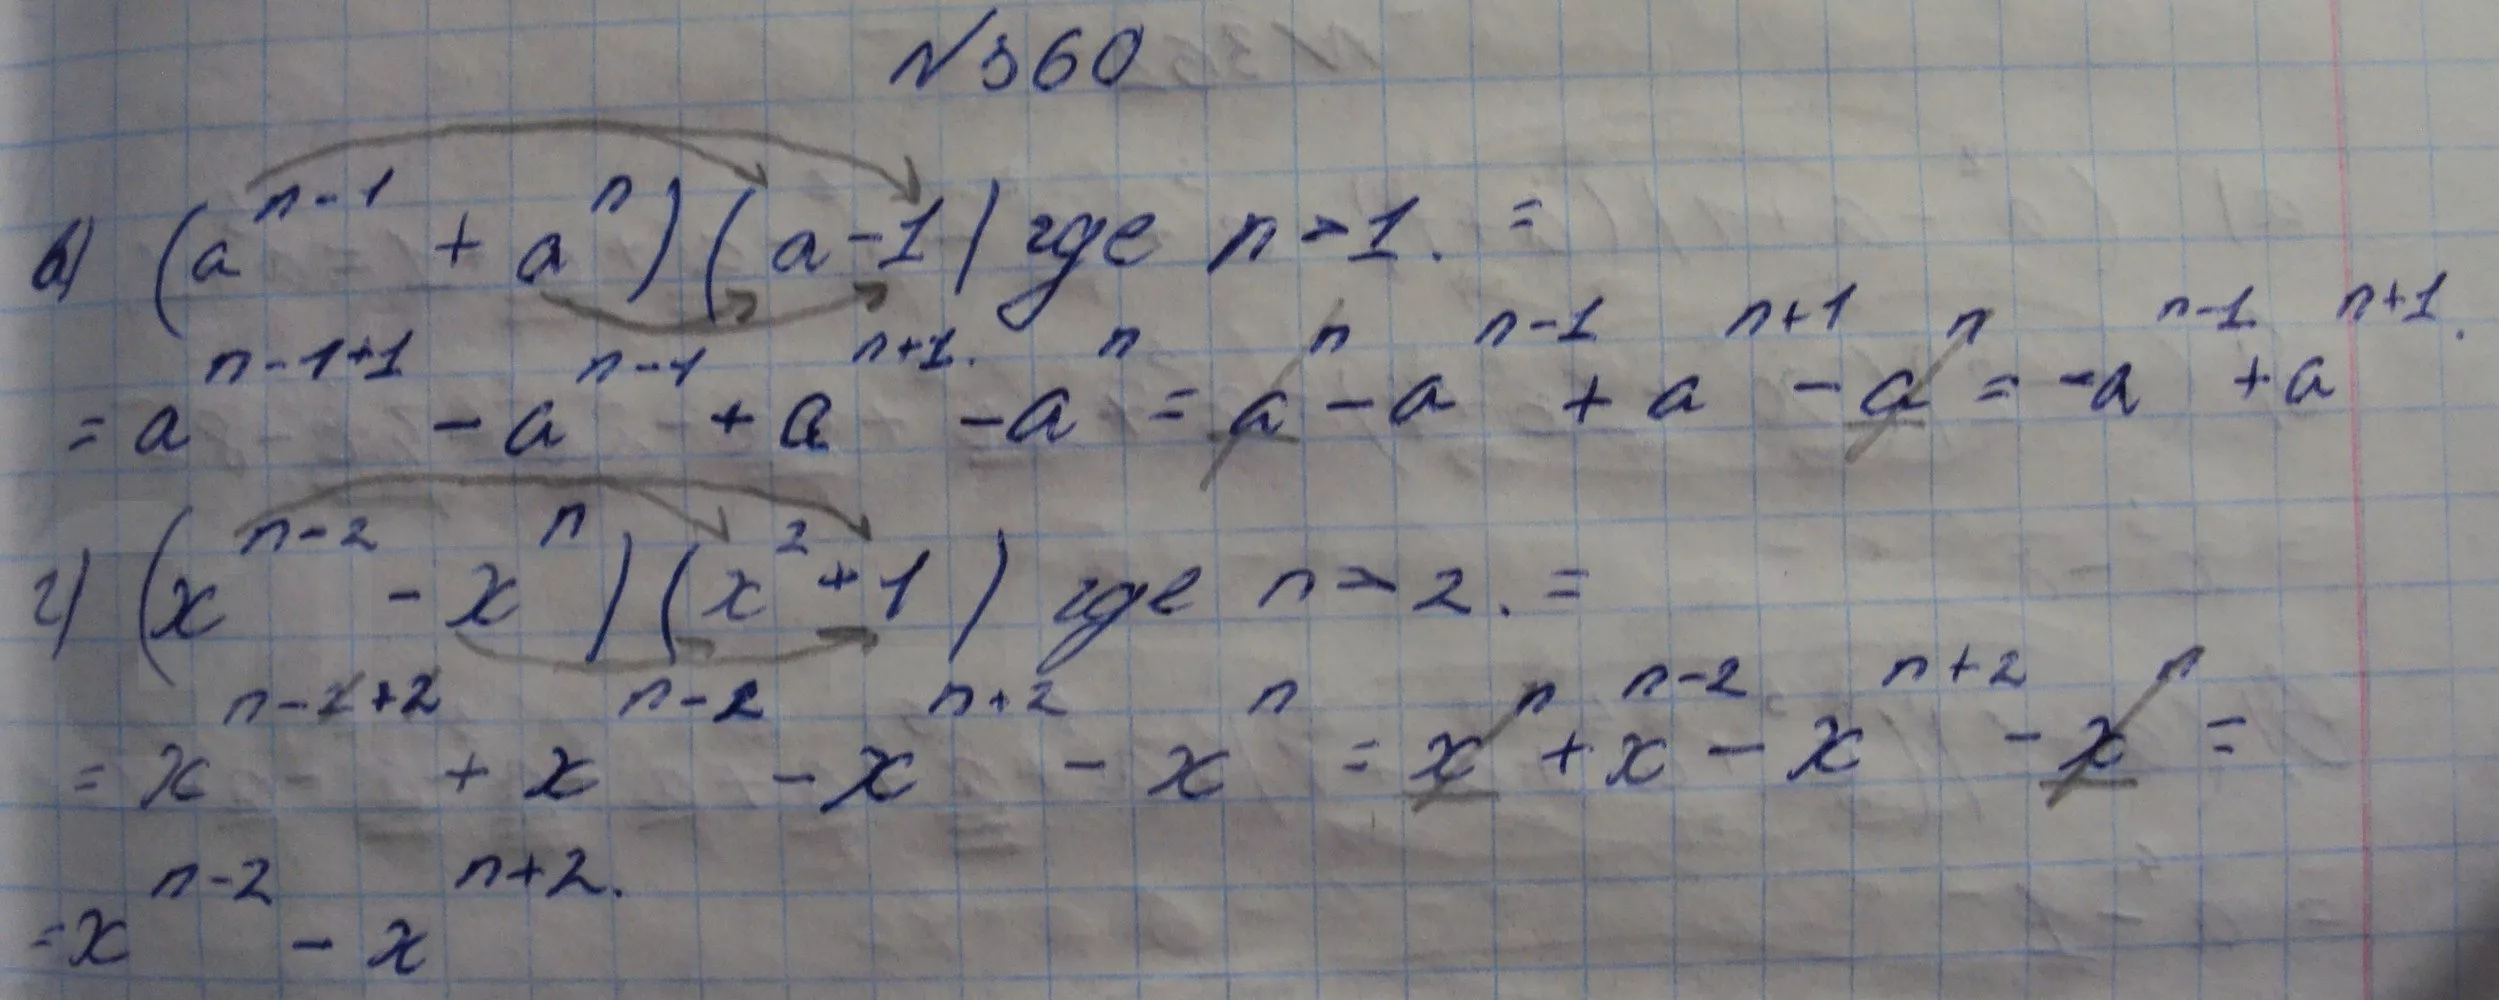 №360
в) (a^{n-1} + a^n)(a-1) где n>1. =
= a^{n-1+1} - a^{n-1} + a^{n+1} - a^n = a^n - a^{n-1} + a^{n+1} - a^n = -a^{n-1} + a^{n+1}.
г) (x^{n-2} - x^n)(x^2+1) где n>2. =
= x^{n-2+2} + x^{n-2} - x^{n+2} - x^n = x^n + x^{n-2} - x^{n+2} - x^n =
= x^{n-2} - x^{n+2}.